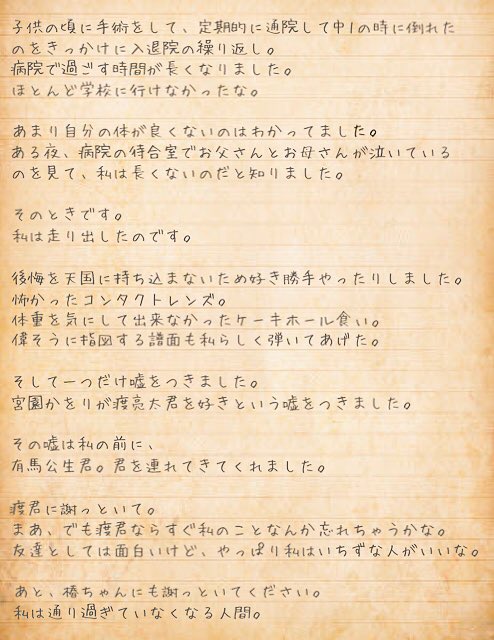 子供の頃に手術をして、定期的に通院して中1の時に倒れた
のをきっかけに入退院の繰り返し。
病院で過ごす時間が長くなりました。
ほとんど学校に行けなかったな。
あまり自分の体が良くないのはわかってました。
ある夜、病院の待合室でお父さんとお母さんが泣いている
のを見て、私は長くないのだと知りました。
そのときです。
私は走り出したのです。
後悔を天国に持ち込まないため好き勝手やったりしました。
怖かったコンタクトレンズ。
体重を気にして出来なかったケーキホール食い。
偉そうに指図する譜面も私らしく弾いてあげた。
そして一つだけ嘘をつきました。
宮園かをりが渡亮太君を好きという嘘をつきました。
その嘘は私の前に、
有馬公生君。君を連れてきてくれました。
渡君に謝っといて。
まあ、でも渡君ならすぐ私のことなんか忘れちゃうかな。
友達としては面白いけど、やっぱり私はいちずな人がいいな。
あと、椿ちゃんにも謝っといてください。
私は通り過ぎていなくなる人間。